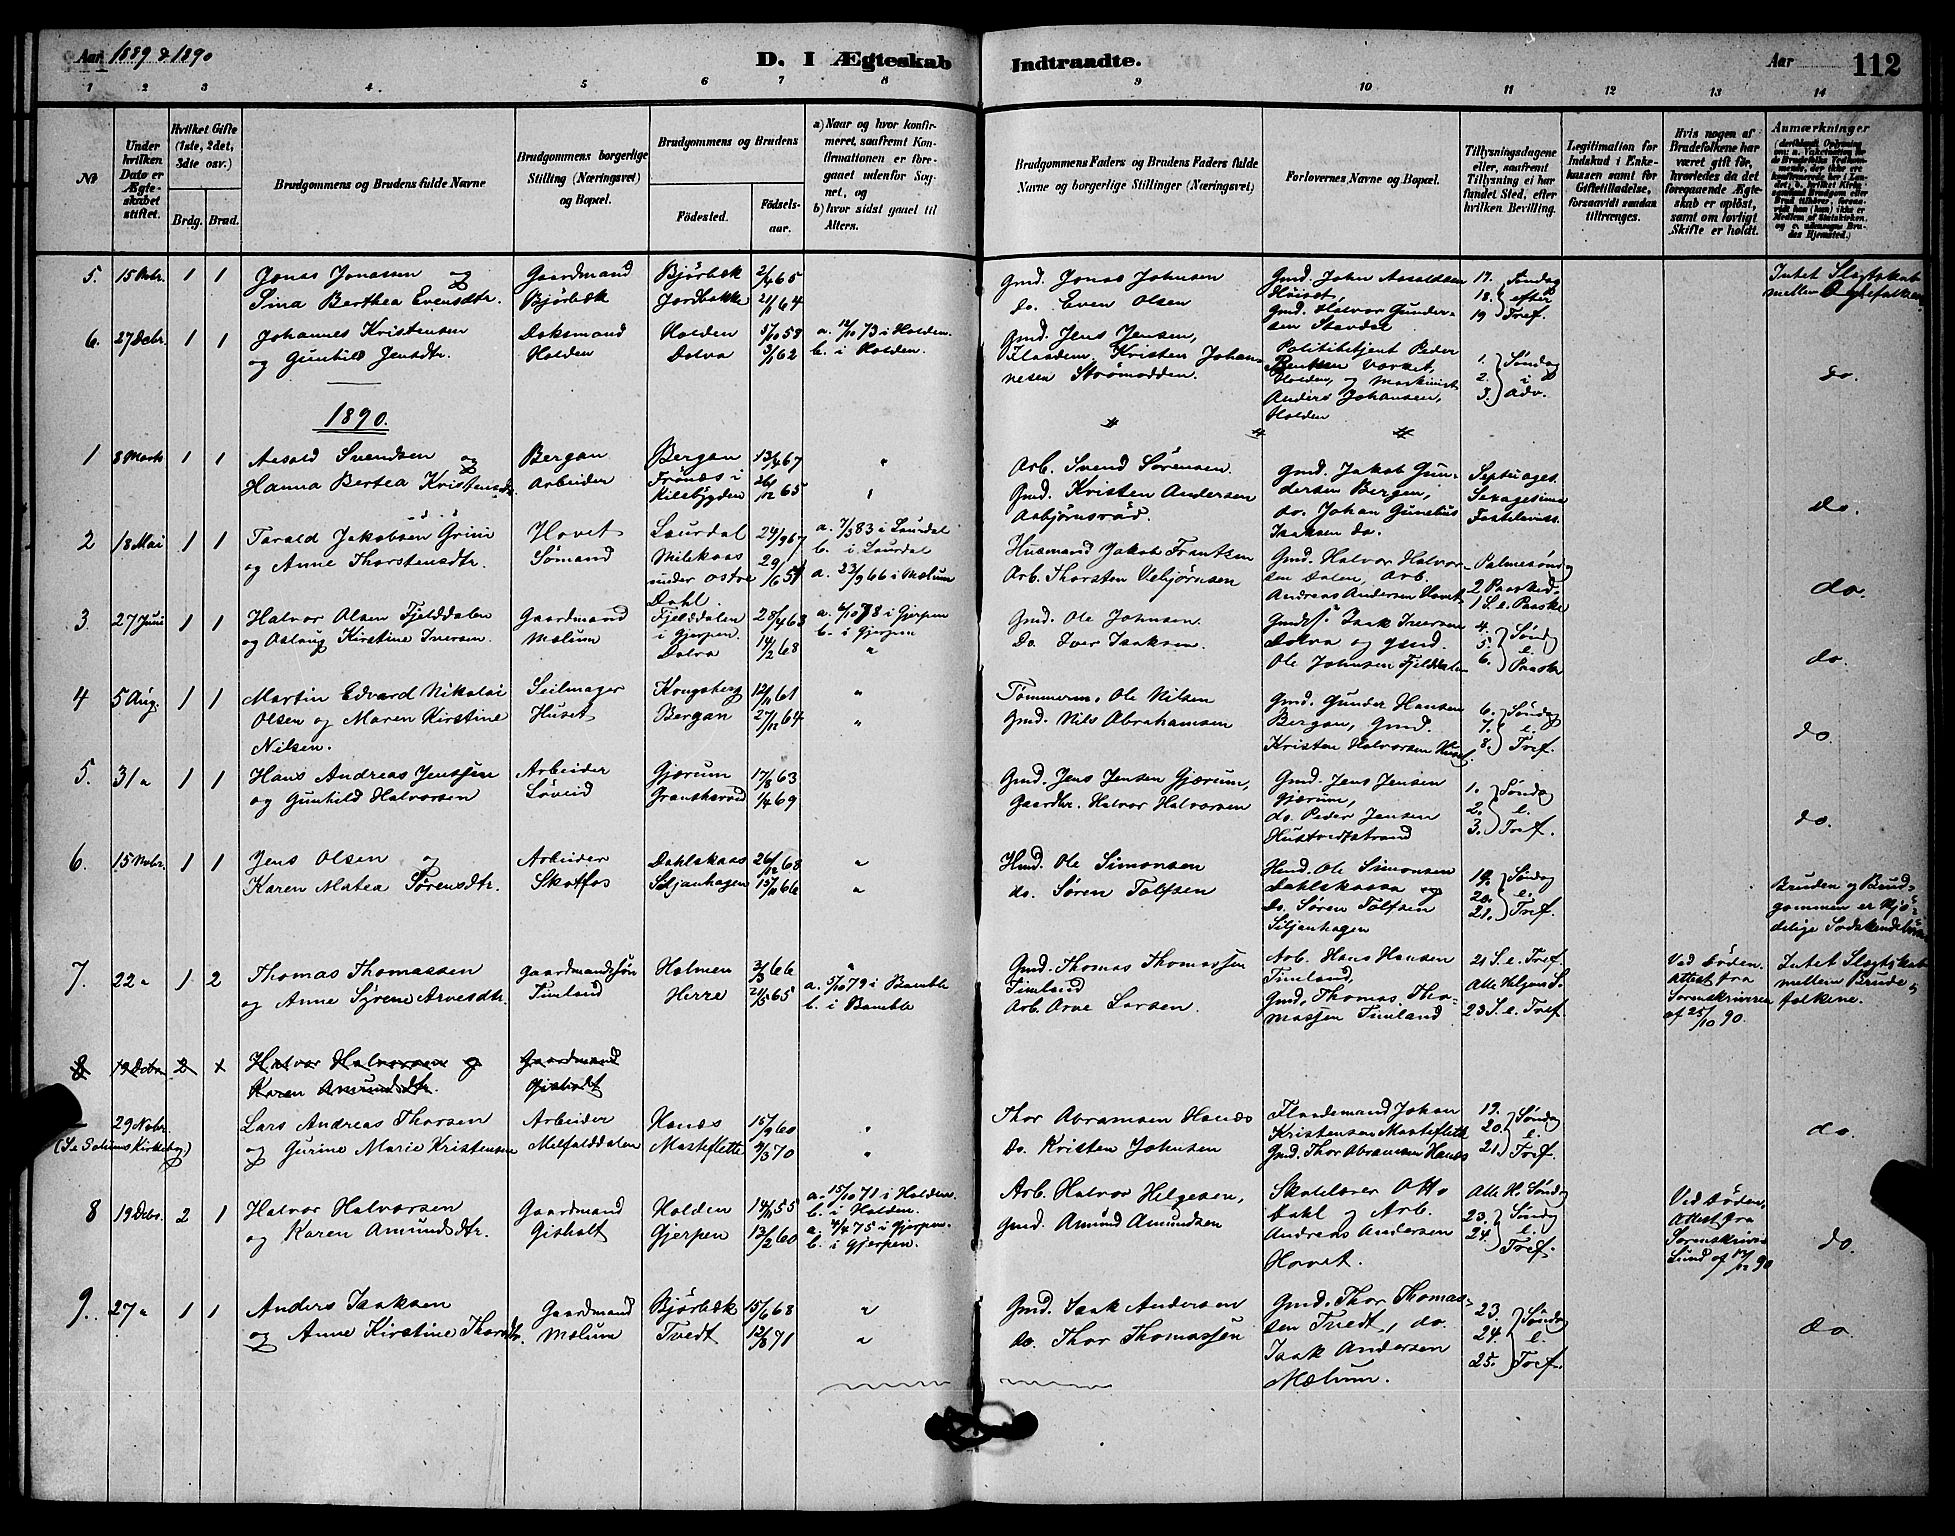 Aar 1889 & 1890
D. I Ægteskab
Indtraadte.
Aar 112
1 2 3 4 5 6 7 8 9 10 11 12 13 14
No
Under hvilken Dato er Ægteskabet stiftet.
Hvilket Gifte (1ste, 2det, 3die osv.)
Brdg. Brud.
Brudgommens og Brudens fulde Navne
Brudgommens borgerlige Stilling (Næringsvei) og Bopæl.
Brudgommens og Brudens
Fødested.
Fødselsaar.
a) Naar og hvor konfirmeret, saafremt Konfirmationen er foregaaet udenfor Sognet, og
b) hvor sidst gaaet til Alters.
Brudgommens Faders og Brudens Faders fulde Navne og borgerlige Stillinger (Næringsvei)
Forlovernes Navne og Bopæl.
Tillysningsdagene eller, saafremt Tillysning ei har fundet Sted, efter hvilken Bevilling.
Legitimation for Indskud i Enkekassen samt for Giftetilladelse, forsaavidt saadan tiltrænges.
Hvis nogen af Brudefolkene har været gift før, hvorledes da det foregaaende Ægteskab er opløst, samt om lovligt Skifte er holdt.
Anmærkninger
5. 15 Nobr. 1 1 Jonas Jonassen og Gaardmand Bjørbæk 2/4 65 Gmd. Jonas Johnsen Gmd. John Aasoldsen 17. Søndag Intet Slegtskab
Sina Berthea Evensdtr. Bjørbæk Jordbakke 2/1 64 do. Even Olsen Huiset, 18. efter mellem Brudefolkene
Gmd. Halvor Gundersen Stavdal 19 Tref.
6. 27 Decbr. 1 1 Johannes Kristensen Baksmand Holden 5/10 58 a. 12/10 73 i Holden. Gmd. Jens Jensen, Politibetjent Peder 1. Søndag do.
og Gunhild Jensdtr. Holden Dolva 3/1 62 b. i Holden. Flaadem. Kristen Johannesen Strømodden. BentsenVærket, 2. i
Holden, og Maskinist 3. Adv.
Anders Johansen,
Holden
1890.
1 8 Marts 1 1 Aasold Svendsen og Bergan Bergan 13/4 67 " Arb. Svend Sørensen. Gmd. Jakob Gundersen Bergen, Septuages.
Hanna Bertea Kristensdtr. Arbeider Frönæs i Kilebygden 26/12 65 " Gmd. Kristen Andersen do. Johan Gunelius Sexagesima do.
Asbjørnsröd. Isaksen do. Fastelavns.
2 18 Mai 1 1 Tarald Jakobsen Grini Hovet Laurdal 24/9 67 a. 7/3 83 i Laurdal Husmand Jakob Frantsen Gmd. Halvor Halvorsen Dalen, Arb. Palmesöndg
og Anne Thorstensdtr. Sømand Milekaas 29/6 51 b. i Laurdal Arb. Thorsten Vebjørnsen Andreas Andersen Hovet 2 Paasked. do.
under Østre Dahl. a. 23/9 66 i Mælum 1 S. e. Paaske
3 27 Juni 1 1 Halvor Olsen Fjelddalen Gaardmand Fjelddalen i Gjerpen. 28/4 63 a. 6/10 78 i Gjerpen Gmd. Ole Johnsen Isak Iversen 4. Sönd.
og Aslaug Kirstine Iversen. Mælum Dolva 14/2 68 b. i Gjerpen Do. Iver Isaksen. Dolva og Gmd. 5. e. do.
" Ole Johnsen Fjelddalen 6. Paaske
4 5 Aug. 1 1 Martin Edvard Nikolai Seilmager Kongsberg 12/11 61 " Tømmerm. Ole Nilsen Gmd. Gunder Hansen 6. Søndag
Olsen og Maren Kirstine Huset Bergan 27/12 64 " Gmd. Nils Abrahamsen Bergan, Gmd. 7. e. do.
Nilsen. Kristen Halvorsen Huset. 8. Tref.
5. 31 " 1 1 Hans Andreas Jenssen Arbeider Gjærum 17/8 63 Gmd. Jens Jensen Gjærum, Gmd. Jens Jensen 1. Søndag
og Gunhild Halvorsen Løveid Gransherred 1/4 69 Gaardbr. Halvor Halvorsen, Gjærum, 2. e. do.
do. Peder Jensen 3. Tref.
Hustvedtstrand
6. 15 Nobr. 1 1 Jens Olsen og Arbeider Dahlskaas 26/12 68 " Hmd. Ole Simonsen Hmd. Ole Simonsen 19. Søndag Bruden og Brudgommen er
Karen Matea Sørensdtr. Skotfos Siljanhagen 15/11 66 " do. Søren Tolfsen Dahlskaasa og 20. e.
Do. Søren Tolfsen 21. Tref. Södskendebörn
Siljanhagen
7. 22 " 1 2 Thomas Thomassen Gaardmandssøn Holmen 3/3 66 " Gmd. Thomas Thomassen Arb. Hans Hansen 21 S. e. Tref. Ved Döden. Intet Slegtskab
og Anne Syrene Arvesdtr. Timland Herre 21/5 65 a. 5/10 79 i Bamble Timland Timland, Alle Helgens S. Attest fra mellem Brude-
b. i Bamble Arb. Arve Larsen. Gmd. Thomas Thomassen Timland 23 S. e. Tref Sorenskriveren folkene.
af 25/10 90.
8 19 Decbr. 2 1 Halvor Halvorsen og Gaardmand
Karen Amundsdtr. Gisholt
29 Nobr. Lars Andreas Thorsen Arbeider Hanæs 15/9 60 " Thor Abramsen Hanæs Flaademand Johan 19. Søndag
(Se Solums Kirkebog) og Gurine Marie Kristensen Melfalddalen Masteflette 4/3 70 " Do. Kristen Johnsen Kristensen Masteflette 20. e. do.
Gmd. Thor Abramsen Hanæs 21. Tref.
8 19 Decbr. 2 1 Halvor Halvorsen Gaardmand Holden 14/11 55 a. 15/10 71 i Holden. Arb. Halvor Helgesen, Skolelærer Otto Alle H. Søndag Ved Döden,
og Karen Amundsdtr. Gisholt Gjerpen 13/2 60 b. i Holden. Gmd. Amund Amundsen Dahl og Arb. 23. Søndag Attest fra
a. 4/4 75 i Gjerpen. Andreas Andersen 24. e. Sorenskriver do.
b. i Gjerpen. Hovet. Tref. Lund af 17/12 90
9. 27 " 1 1 Anders Isaksen Gaardmand Bjørbæk 15/6 68 " Gmd. Isak Andersen Gmd. Thor Thomassen Tvedt, do. 23. Søndag
og Anne Kirstine Thorsdtr. Mælum Tvedt 12/8 71 " do. Thor Thomassen Isak Andersen 24. e. do.
Mælum. 25. Tref.